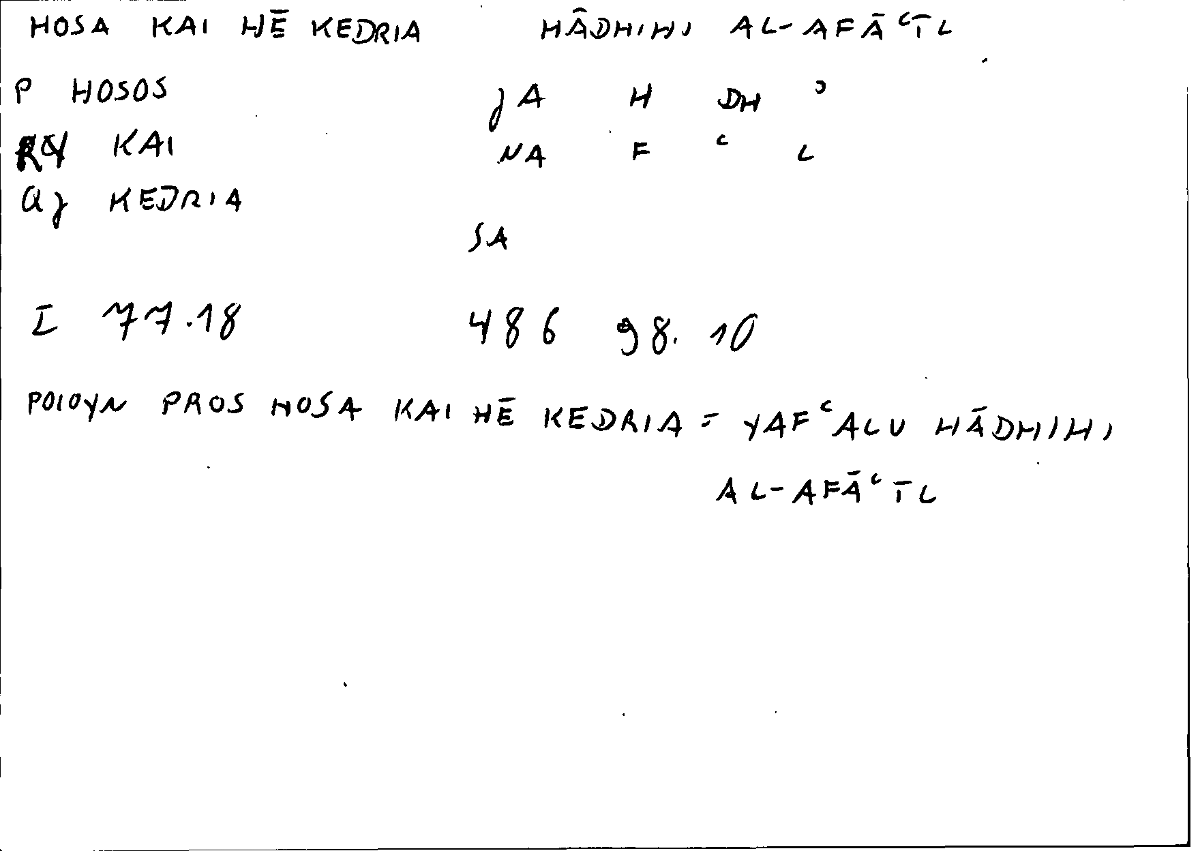 HOSA KAI HĒ KEDRIA HĀDHIHI AL-AFĀʿĪL
P HOSOS JA H DH ʾ
KAI NA F ʿ L
QJ KEDRIA
SA
I 77.18 486 98.10
POIOYN PROS HOSA KAI HĒ KEDRIA = YAFʿALU HĀDHIHI
AL-AFĀʿĪL